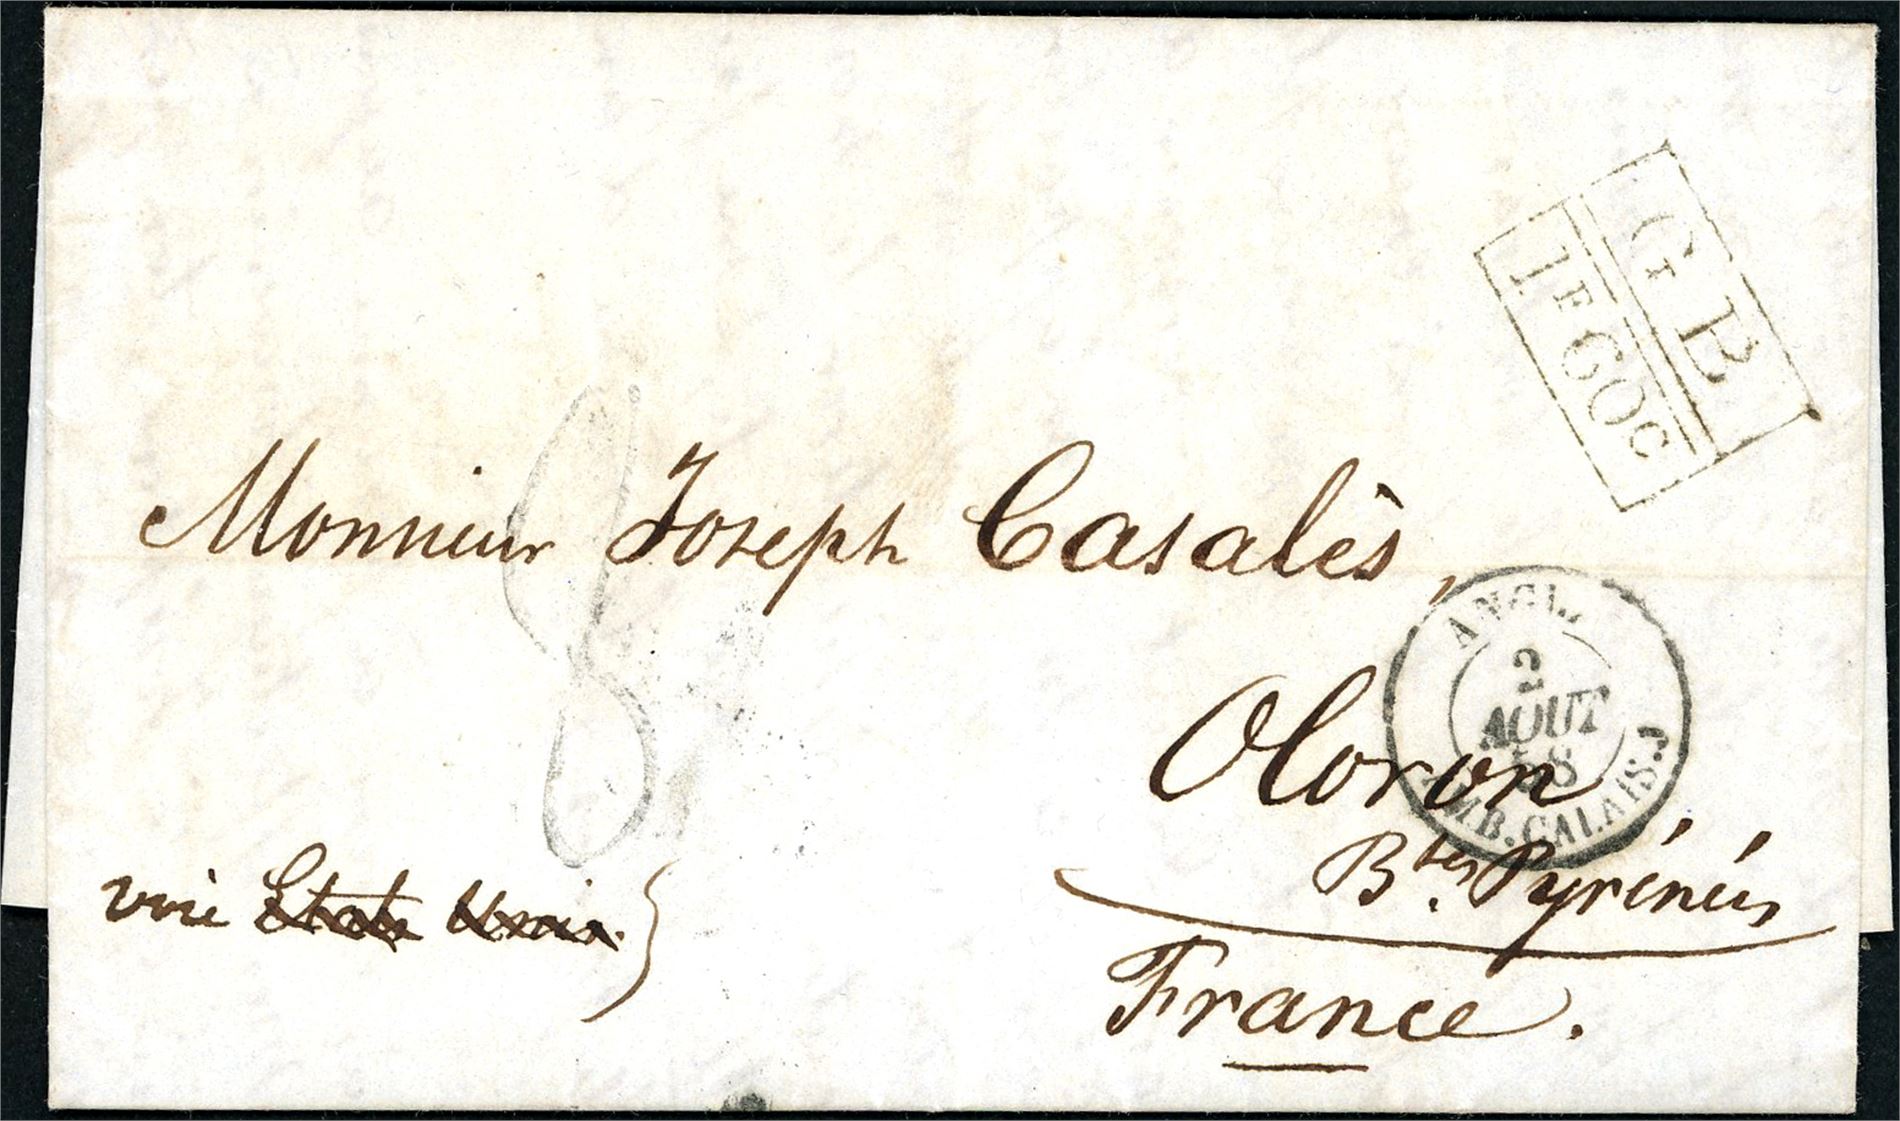 G B
1F60c
8
Monsieur Joseph Casalès,
ANGL.
2
AOUT
58
AMB. CALAIS. J
Oloron
Btes Pyrénées
voie Etats Unis
France.